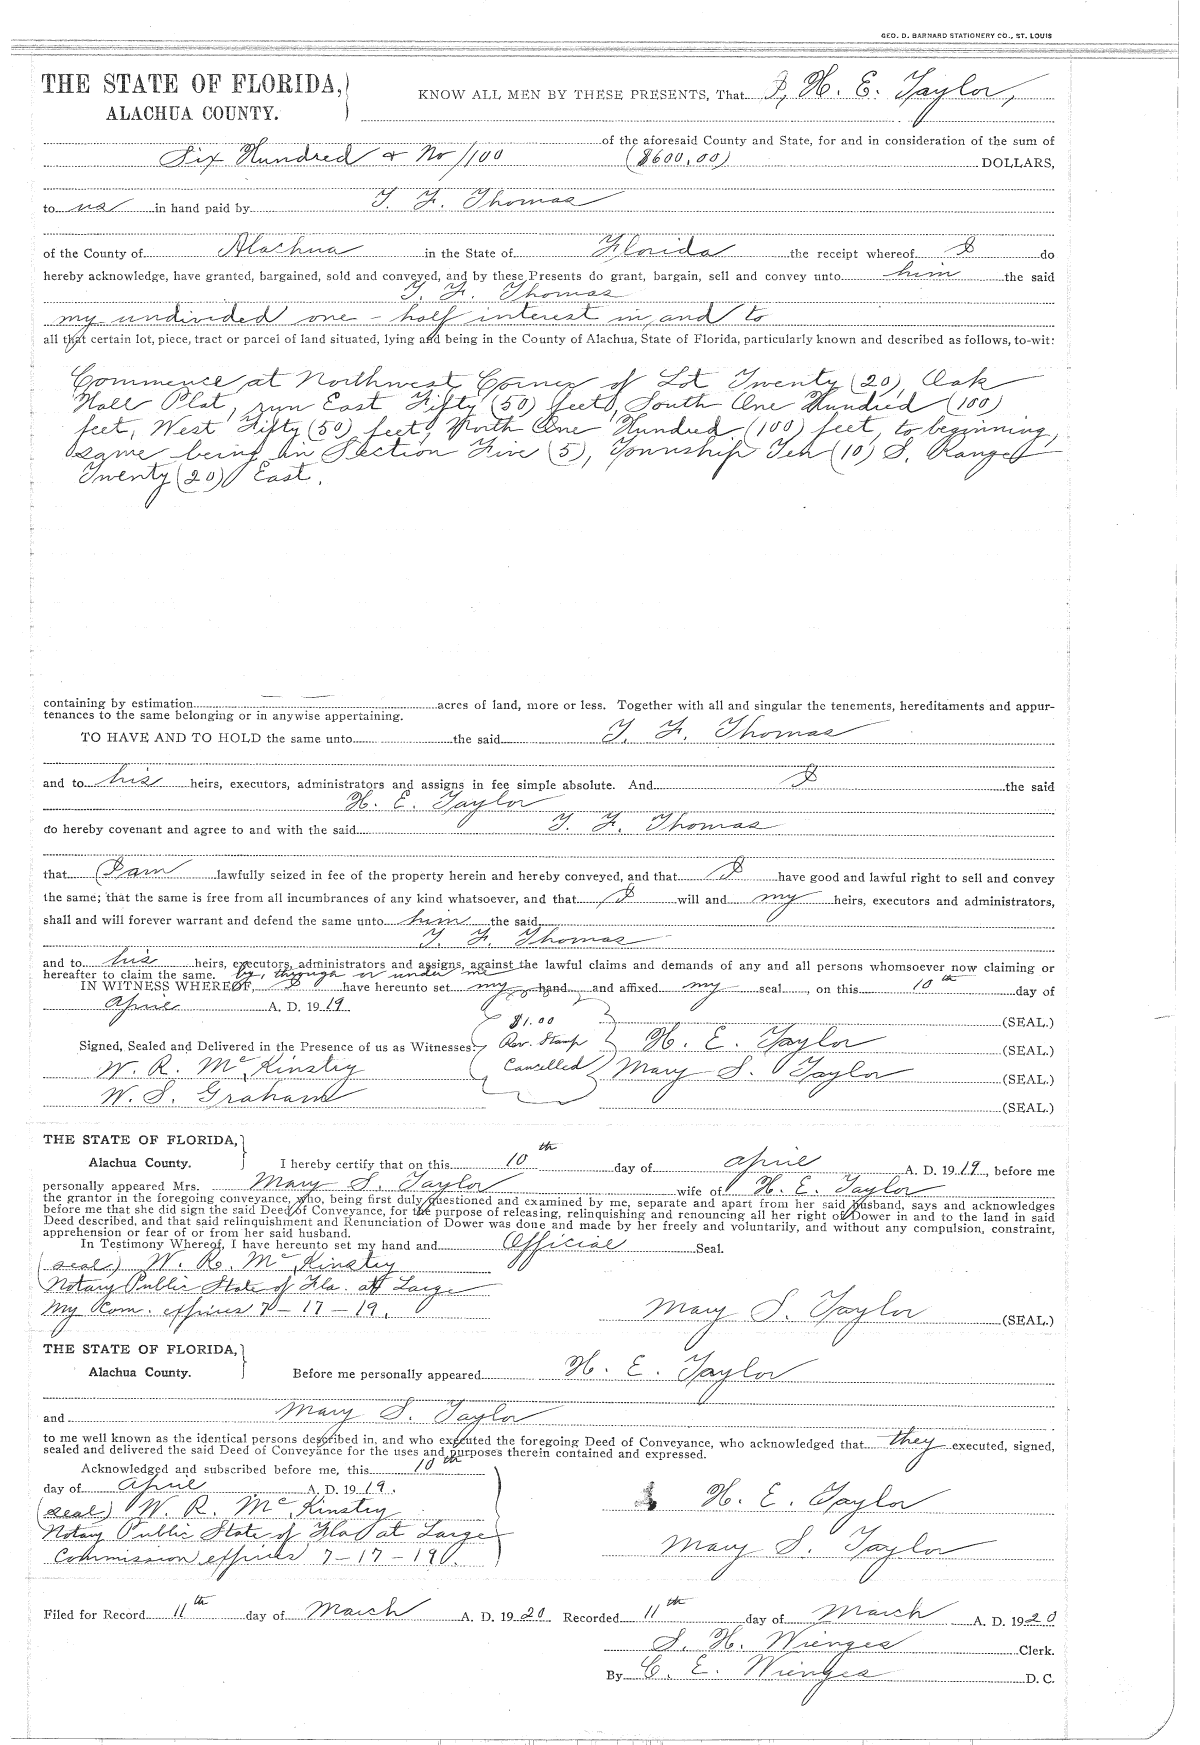 GEO. D. BARNARD STATIONERY CO., ST. LOUIS
THE STATE OF FLORIDA,
ALACHUA COUNTY.
KNOW ALL MEN BY THESE PRESENTS, That I, H. E. Taylor,
of the aforesaid County and State, for and in consideration of the sum of
Six Hundred & No/100 ($600,00) DOLLARS,
to us in hand paid by T. F. Thomas
of the County of Alachua in the State of Florida the receipt whereof I do
hereby acknowledge, have granted, bargained, sold and conveyed, and by these Presents do grant, bargain, sell and convey unto him the said
T. F. Thomas
my undivided one-half interest in and to
all that certain lot, piece, tract or parcel of land situated, lying and being in the County of Alachua, State of Florida, particularly known and described as follows, to-wit:
Commence at Northwest Corner of Lot Twenty (20), Oak
Hall Plat, run East Fifty (50) feet, South One Hundred (100)
feet, West Fifty (50) feet, North One Hundred (100) feet, to beginning,
same being in Section Five (5), Township Ten (10) S. Range
Twenty (20) East.
containing by estimation acres of land, more or less. Together with all and singular the tenements, hereditaments and appur-
tenances to the same belonging or in anywise appertaining.
TO HAVE AND TO HOLD the same unto the said T. F. Thomas
and to his heirs, executors, administrators and assigns in fee simple absolute. And I the said
H. E. Taylor
do hereby covenant and agree to and with the said T. F. Thomas
that I am lawfully seized in fee of the property herein and hereby conveyed, and that I have good and lawful right to sell and convey
the same; that the same is free from all incumbrances of any kind whatsoever, and that I will and my heirs, executors and administrators,
shall and will forever warrant and defend the same unto him the said
T. F. Thomas
and to his heirs, executors, administrators and assigns, against the lawful claims and demands of any and all persons whomsoever now claiming or
hereafter to claim the same. by, through or under me
IN WITNESS WHEREOF, I have hereunto set my hand and affixed my seal, on this 10th day of
April A. D. 1919
$1.00 (SEAL.)
Signed, Sealed and Delivered in the Presence of us as Witnesses: Rev. Stamp H. E. Taylor (SEAL.)
W. R. McKinstry Cancelled Mary S. Taylor (SEAL.)
W. S. Graham (SEAL.)
THE STATE OF FLORIDA,
Alachua County. I hereby certify that on this 10th day of April A. D. 1919, before me
personally appeared Mrs. Mary S. Taylor wife of H. E. Taylor
the grantor in the foregoing conveyance, who, being first duly questioned and examined by me, separate and apart from her said husband, says and acknowledges
before me that she did sign the said Deed of Conveyance, for the purpose of releasing, relinquishing and renouncing all her right of Dower in and to the land in said
Deed described, and that said relinquishment and Renunciation of Dower was done and made by her freely and voluntarily, and without any compulsion, constraint,
apprehension or fear of or from her said husband.
In Testimony Whereof, I have hereunto set my hand and Official Seal.
(seal) W. R. McKinstry
Notary Public State of Fla. at Large
My Com. expires 7-17-19. Mary S. Taylor (SEAL.)
THE STATE OF FLORIDA,
Alachua County. Before me personally appeared H. E. Taylor
and Mary S. Taylor
to me well known as the identical persons described in, and who executed the foregoing Deed of Conveyance, who acknowledged that they executed, signed,
sealed and delivered the said Deed of Conveyance for the uses and purposes therein contained and expressed.
Acknowledged and subscribed before me, this 10th
day of April A. D. 1919.
(seal) W. R. McKinstry H. E. Taylor
Notary Public State of Fla at Large
Commission expires 7-17-19. Mary S. Taylor
Filed for Record 11th day of March A. D. 1920 Recorded 11th day of March A. D. 1920
S. H. Wienges Clerk.
By C. E. Wienges D. C.